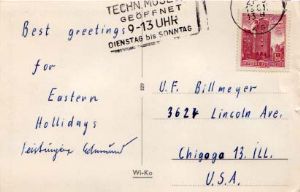 TECHN. MUSEUM
GEÖFFNET
9-13 UHR
DIENSTAG bis SONNTAG
Best greetings
for
Eastern
Hollidays
U.F. Billmeyer
3627 Lincoln Ave.
Chigago 13. Ill.
U.S.A.
Wi-Ko